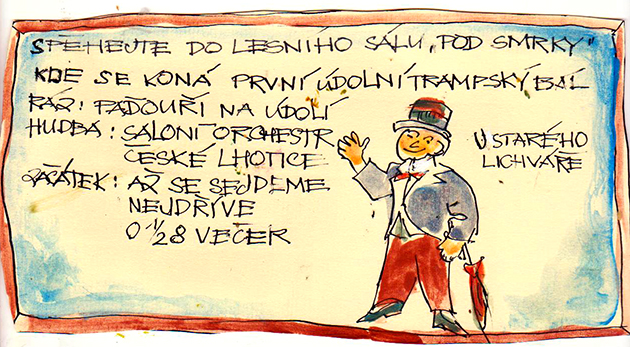 SPĚHEJTE DO LESNÍHO SÁLU „POD SMRKY"
KDE SE KONÁ PRVNÍ ÚDOLNÍ TRAMPSKÝ BÁL
RÁZ: PAĎOUŘI NA ÚDOLÍ
HUDBA: SALONÍ ORCHESTR
ČESKÉ LHOTICE
ZAČÁTEK: AŽ SE SEJDEME
NEJDŘÍVE
O 1/28 VEČER
U STARÉHO
LICHVÁŘE